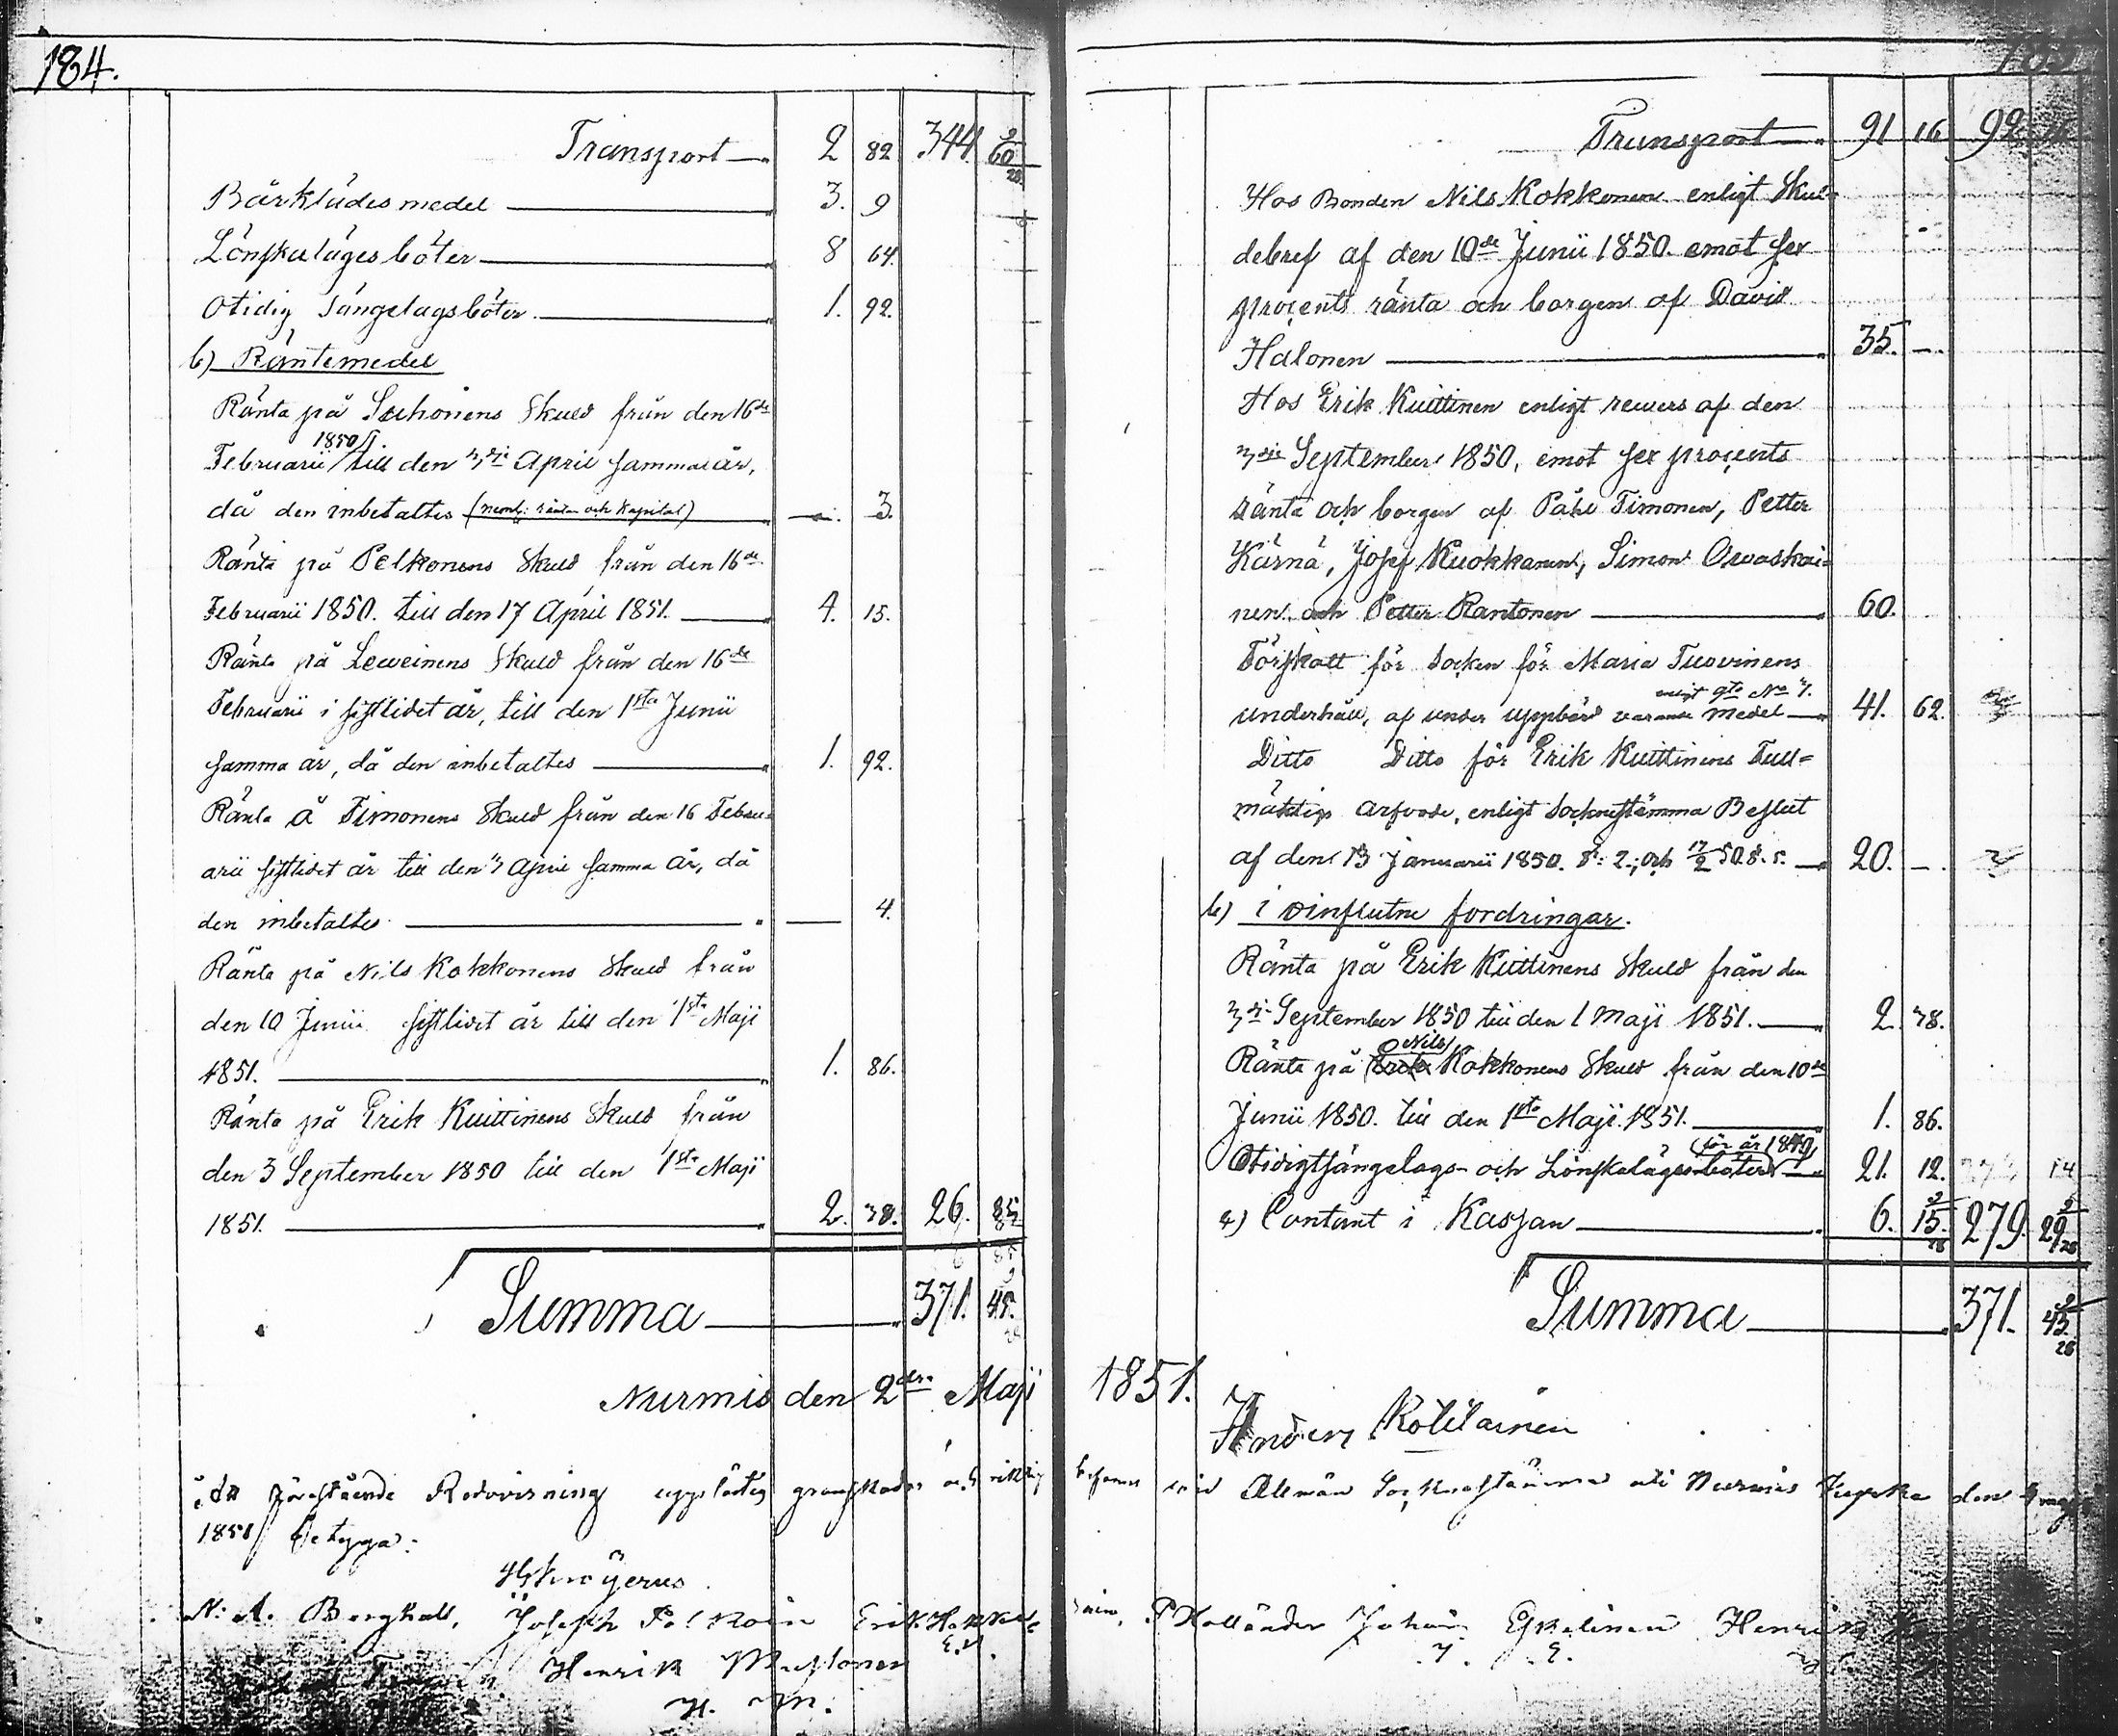 184.
Transport 2 82 344. 2/60 28
Bårklädes medel 3. 9
Lönskalägesböter 8 64.
Otidig Sängelagsböter 1. 92.
b) Räntemedel
Ränta på Skuld från den 16de
Februarii 1850 till den 3die April samma år,
då den inbetaltes (neml: räntan och Kapital) —. 3.
Ränta på Pelkonens Skuld från den 16de
Februarii 1850. till den 17 April 1851. 4. 15.
Ränta på Leweinens Skuld från den 16de
Februarii sistlidet år, till den 1sta Junii
samma år, då den inbetaltes 1. 92.
Ränta å Timonens Skuld från den 16 Febru-
arii sistlidet år till den 3 April samma år, då
den inbetaltes — 4.
Ränta på Nils Kokkonens Skuld från
den 10 Junii sistlidet år till den 1sta Maji
1851. 1. 86.
Ränta på Erik Kuittinens Skuld från
den 3 September 1850 till den 1sta Maji
1851. 2. 78. 26. 85
Summa 371. 45.
Nurmis den 2dra Maji
förestående Redovisning uppläst, granskades och riktig
1851 betyga:
N. A. Berghall, Joseph Erik
E.
Henrik Mustonen
H. M.
Transport 91 16 92
Hos Bonden Nils Kokkonen enligt Skul-
debref af den 10de Junii 1850. emot sex
procents ränta och borgen af David
Halonen 35. —.
Hos Erik Kuittinen enligt revers af den
3die September 1850, emot sex procents
ränta och borgen af Påhl Timonen, Petter
Kärnä, Josef Kuokkanen, Simon Orvaskai-
nen och Petter Rantonen 60.
Förskott för Socken för Maria Tuovinens
underhåll, af under uppbörd varande medel enligt qto No 7. 41. 62.
Ditto Ditto för Erik Kuittinens Full-
mäktigs arfvode, enligt Sockenstämma Beslut
af den 13 Januarii 1850. §: 2.; och 17/2 50. §. 5. 20. —.
b) i oinflutne fordringar.
Ränta på Erik Kuittinens Skuld från den
3die September 1850 till den 1 Maji 1851. 2. 78.
Ränta på Erik Nils Kokkonens Skuld från den 10de
Junii 1850. till den 1sta Maji 1851. 1. 86.
Otidigtsängelags- och Lönskalägesböter (för år 1849) 21. 12.
Contant i Kassan 6. 2/15. 28 279. 2/29 28
Summa 371. 2/45. 28
1851.
Anders Kotilainen
befanns vid Allmän Sockenstämma uti Nurmis Kyrka den 4 maji
P Holländer Johan Eskelinen Henrik